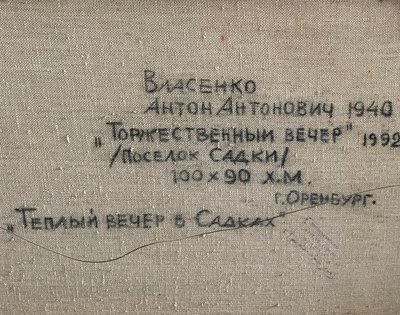 ВЛАСЕНКО
АНТОН АНТОНОВИЧ 1940
"ТОРЖЕСТВЕННЫЙ ВЕЧЕР" 1992
/ПОСЕЛОК САДКИ/
100×90 Х.М.
Г.ОРЕНБУРГ.
"ТЕПЛЫЙ ВЕЧЕР В САДКАХ"